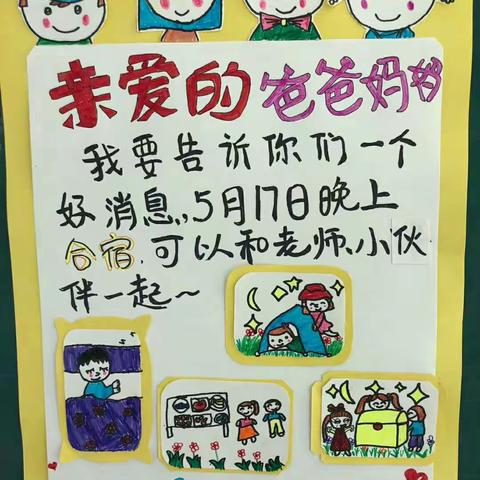 亲爱的爸爸妈妈
我要告诉你们一个
好消息,,5月17日晚上
合宿,可以和老师、小伙
伴一起~